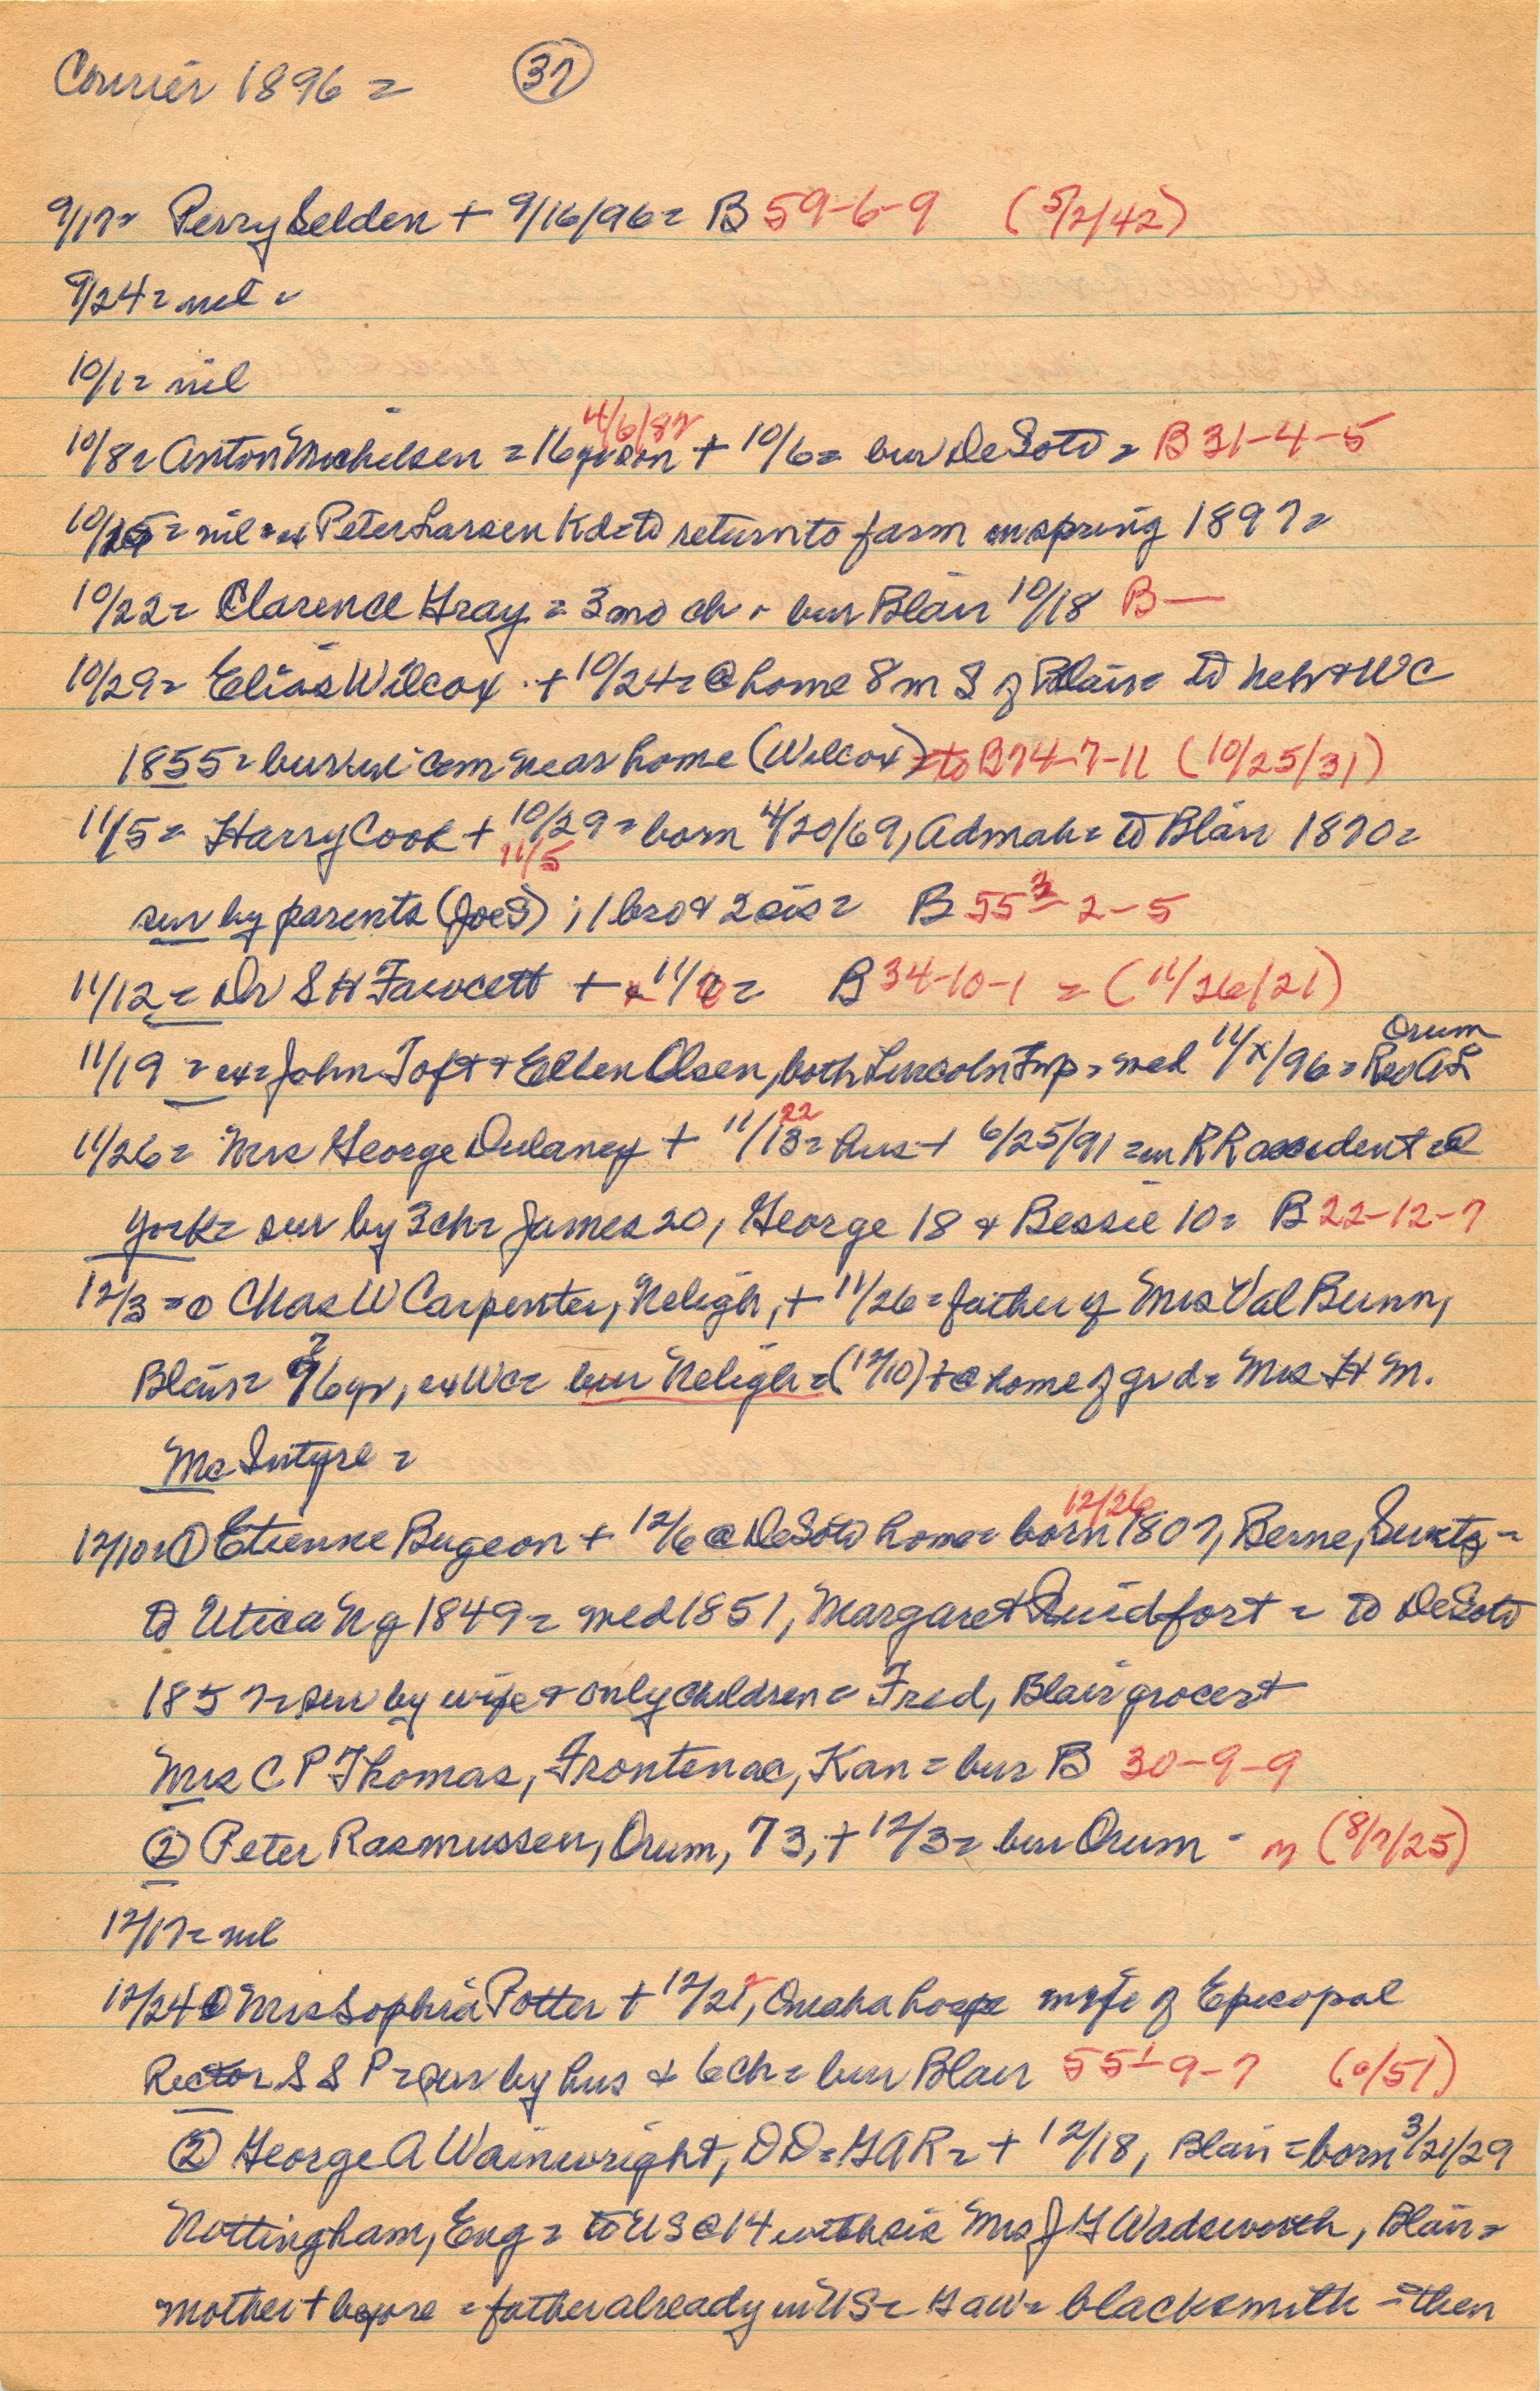 Courier 1896 = (37)
9/17= Perry Selden + 9/16/96= B 59-6-9 (5/2/42)
9/24= nil =
10/1= nil
4/6/87
10/8= Anton Michelsen = 16 yr son + 10/6= bur DeSoto = B 31-4-5
10/15= nil = ex Peter Larsen Kd= to return to farm in spring 1897=
10/22= Clarence Gray = 3 mo ch - bur Blair 10/18 B—
10/29= Elias Wilcox + 10/24= @ home 8 m S of Blair= to Neb & WC
1855= bur in cem near home (Wilcox) = to B74-7-11 (10/25/31)
11/5= Harry Cook + 10/29= born 4/20/69, Admah= to Blair 1870=
11/5
sur by parents (Joe S); 1 bro & 2 sis= B 55 3-2-5
11/12= Dr S H Fawcett + 11/ = B 34-10-1 = (11/26/21)
Orum
11/19 = ex= John Toft & Ellen Olsen, both Lincoln Twp= med 11/x/96= Rev AL
22
11/26= Mrs George Dulaney + 11/13= hus + 6/25/91= in RR accident @
York= sur by 3 ch= James 20, George 18 & Bessie 10= B 22-12-7
12/3= ① Chas W Carpenter, Neligh, + 11/26= father of Mrs Val Bunn,
Blair= 76 yr, ex WC= bur Neligh= (12/10) + @ home of gr d= Mrs H M.
McIntyre =
12/26
12/10= ① Etienne Bugeon + 12/6 @ DeSoto home= born 1807, Berne, Switz-
to Utica Ny 1849= med 1851, Margaret Quidfort = to DeSoto
1857= sur by wife & only children= Fred, Blair grocer &
Mrs C P Thomas, Frontenac, Kan= bur B 30-9-9
② Peter Rasmussen, Orum, 73, + 12/3= bur Orum - (8/7/25)
12/17= nil
12/24 ① Mrs Sophia Potter + 12/21, Omaha hosp wife of Episcopal
Rector S S P= sur by hus & 6 ch= bur Blair 55 1-9-7 (0/51)
② George A Wainwright, DD= GAR= + 12/18, Blair= born 3/21/29
Nottingham, Eng= to US @ 14 with sis Mrs J G Wadsworth, Blair=
mother + before = father already in US= Gaw= blacksmith = then